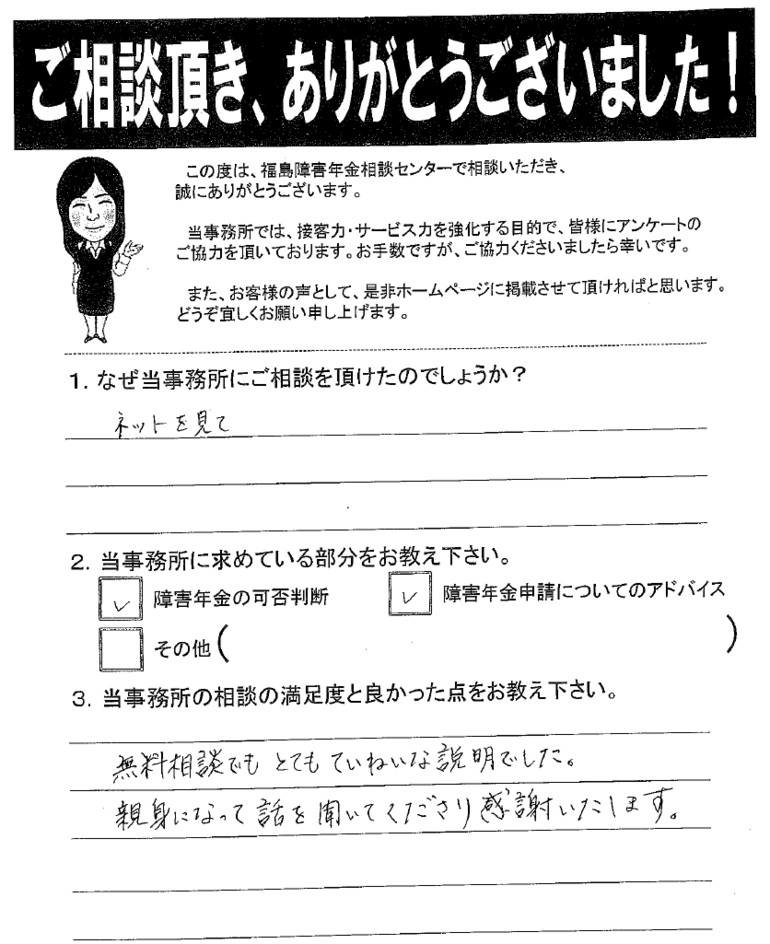 ご相談頂き、ありがとうございました！
この度は、福島障害年金相談センターで相談いただき、
誠にありがとうございます。
当事務所では、接客力・サービス力を強化する目的で、皆様にアンケートの
ご協力を頂いております。お手数ですが、ご協力くださいましたら幸いです。
また、お客様の声として、是非ホームページに掲載させて頂ければと思います。
どうぞ宜しくお願い申し上げます。
1. なぜ当事務所にご相談を頂けたのでしょうか？
ネットを見て
2. 当事務所に求めている部分をお教え下さい。
障害年金の可否判断 障害年金申請についてのアドバイス
その他( )
3. 当事務所の相談の満足度と良かった点をお教え下さい。
無料相談でもとてもていねいな説明でした。
親身になって話を聞いてくださり感謝いたします。